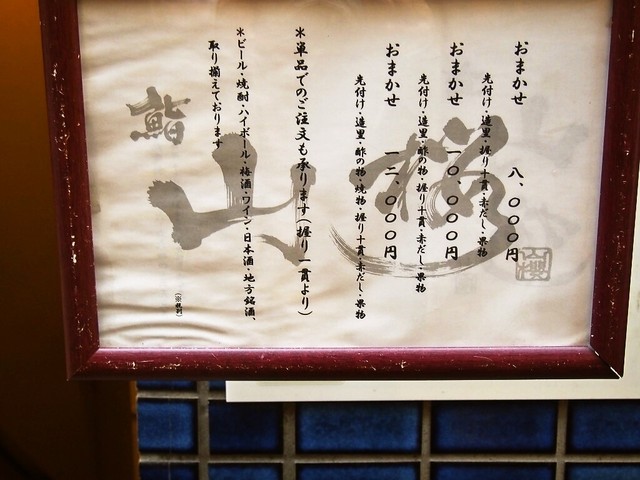 おまかせ 八、〇〇〇円
先付け・造里・握り十貫・赤だし・果物
おまかせ 一〇、〇〇〇円
先付け・造里・酢の物・握り十貫・赤だし・果物
おまかせ 一二、〇〇〇円
先付け・造里・酢の物・焼物・握り十貫・赤だし・果物
＊単品でのご注文も承ります(握り一貫より)
＊ビール・焼酎・ハイボール・梅酒・ワイン・日本酒・地方銘酒、
取り揃えております
(※税別)
鮨
山桜